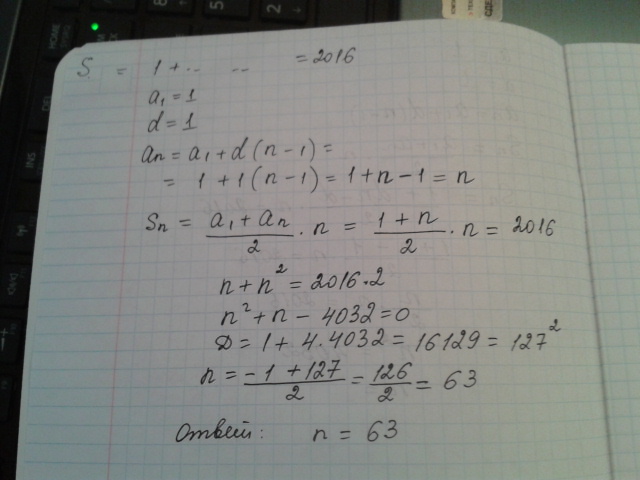 S = 1 + .. .. = 2016
a₁ = 1
d = 1
aₙ = a₁ + d (n - 1) =
= 1 + 1 (n - 1) = 1 + n - 1 = n
Sₙ = (a₁ + aₙ)/2 · n = (1 + n)/2 · n = 2016
n + n² = 2016 · 2
n² + n - 4032 = 0
D = 1 + 4 · 4032 = 16129 = 127²
n = (-1 + 127)/2 = 126/2 = 63
Ответ: n = 63